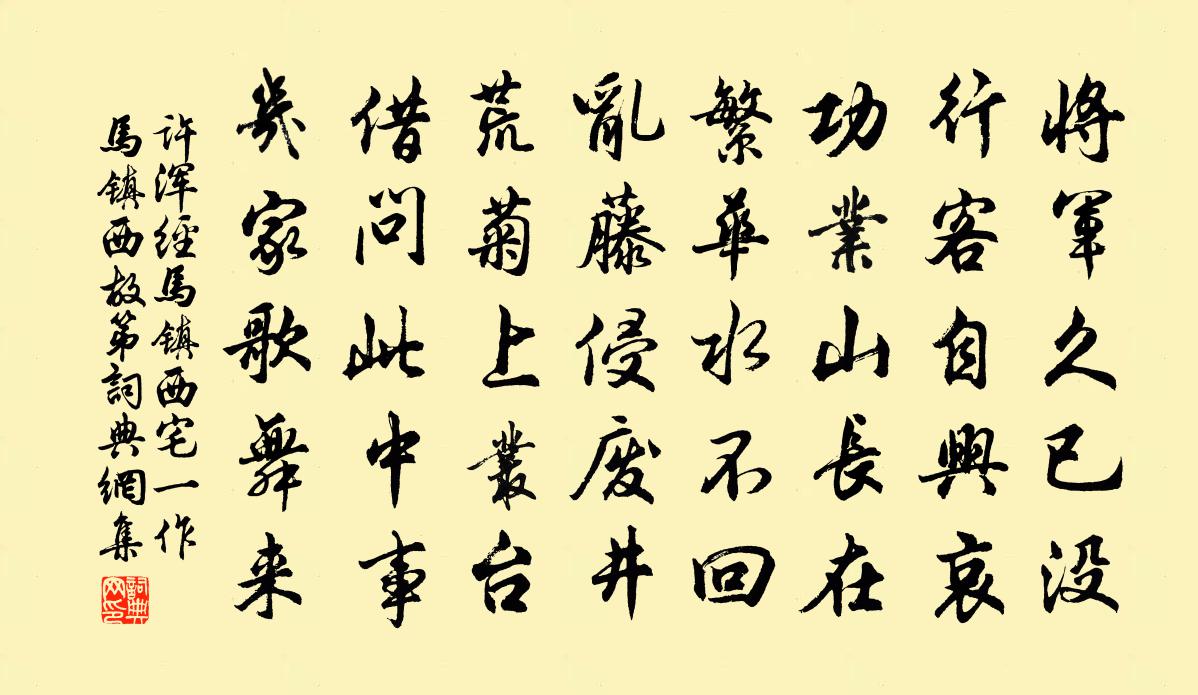 將軍久已没
行客自興哀
功業山長在
繁華水不回
亂藤侵废井
荒菊上叢台
借問此中事
幾家歌舞来
許渾經馬鎮西宅一作
馬鎮西故第詞典網集
詞典网印